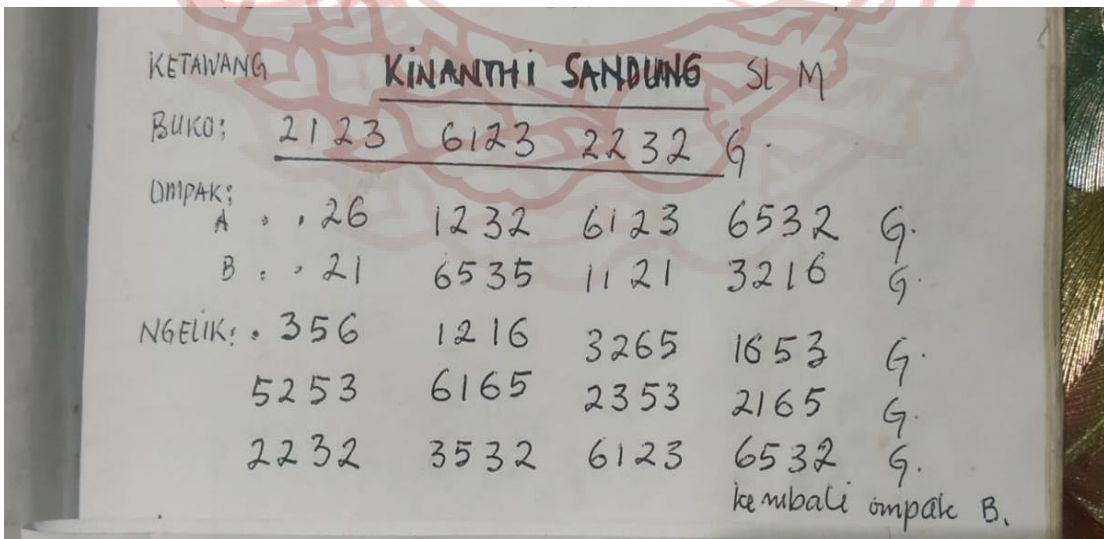 KETAWANG KINANTHI SANDUNG SL M
BUKO: 2123 6123 2232 G.
OMPAK:
A . . 26 1232 6123 6532 G.
B . . 21 6535 1121 3216 G.
NGELIK: . 356 1216 3265 1653 G.
5253 6165 2353 2165 G.
2232 3532 6123 6532 G.
kembali ompak B.